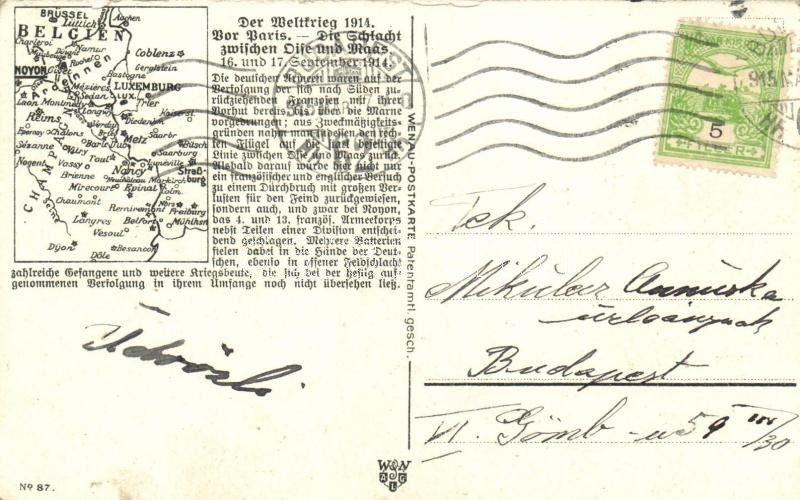 BRÜSSEL
Lüttich
Aachen
BELGIEN
Charleroi
Namur
Coblenz
Gerolstein
Bastogne
NOYON
LUXEMBURG
LUX.
Mézières
Sedan
Trier
Laon
Montmedy
Longwy
Reims
Diedenhfn
Verdun
Saarbr
Epernay
Châlons
Metz
Bitsch
Saarburg
Sézanne
Vitry
Toul
Bar le Duc
Luneville
Nogent
Vassy
Nancy
Straß-
burg
Brienne
Neufchâteau
Markirch
Mirecourt
Epinal
Colm.
Chaumont
Remiremont
Freiburg
Langres
Belfort
Mülhsn
Vesoul
Dijon
Besancon
Dôle
CHAMPAGNE
Seine
Der Weltkrieg 1914.
Vor Paris. — Die Schlacht
zwischen Oise und Maas.
16. und 17. September 1914.
Die deutschen Armeen waren auf der
Verfolgung der sich nach Süden zu-
rückziehenden Franzosen mit ihrer
Vorhut bereits bis über die Marne
vorgedrungen; aus Zweckmäßigkeits-
gründen nahm man nun den rech-
ten Flügel auf die fast befestigte
Linie zwischen Oise und Maas zurück.
Alsbald darauf wurde hier nicht nur
ein französischer und englischer Versuch
zu einem Durchbruch mit großen Ver-
lusten für den Feind zurückgewiesen,
sondern auch, und zwar bei Noyon,
das 4. und 13. französ. Armeekorps
nebst Teilen einer Division entschei-
dend geschlagen. Mehrere Batterien
fielen dabei in die Hände der Deut-
schen, ebenso in offener Feldschlacht
zahlreiche Gefangene und weitere Kriegsbeute, die sich bei der heftig auf-
genommenen Verfolgung in ihrem Umfange noch nicht übersehen ließ.
WENAU-POSTKARTE Patentamtl. gesch.
5
Tek.
Mikulez Annuska
urleánynak
Budapest
VI. Gömb-u 59 III/30
Üdvözli
Nº 87.